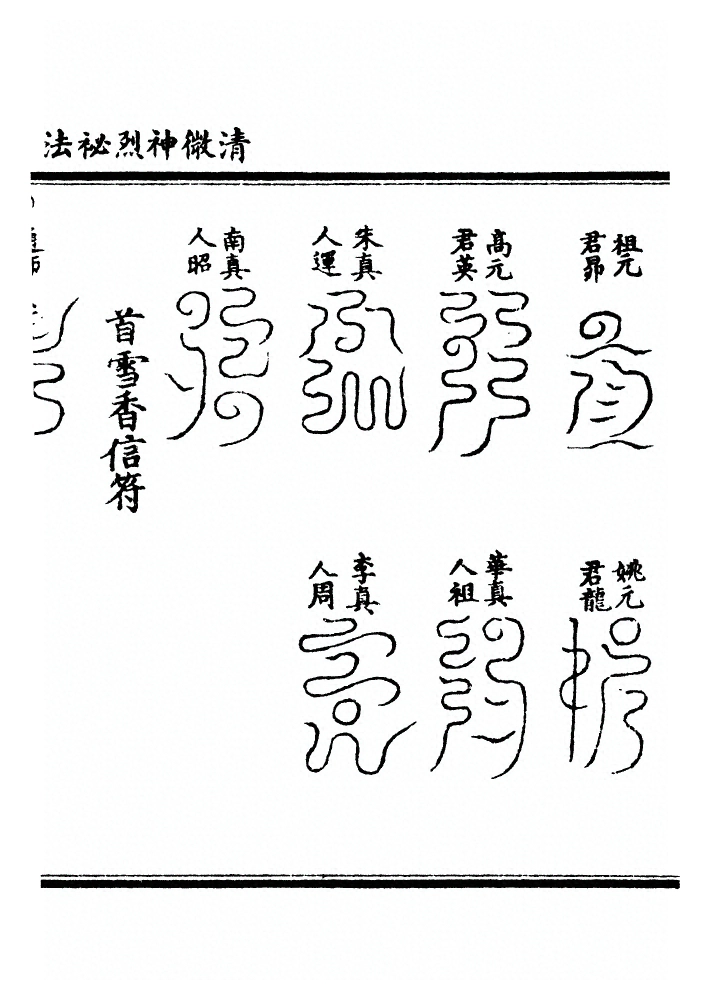 清微神烈祕法
祖元
君昴
姚元
君龍
高元
君英
華真
人祖
朱真
人運
李真
人周
南真
人昭
首雪香信符